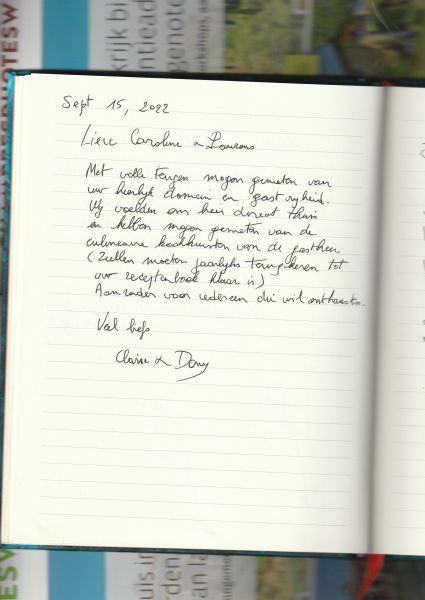 Sept 15, 2022
Lieve Caroline & Laurens
Met volle teugen mogen genieten van
uw heerlijk domein en gastvrijheid.
Wij voelden ons hier direct thuis
en hebben mogen genieten van de
culinaire kookkunsten van de gastheer
(Zullen moeten jaarlijks terugkeren tot
uw receptenboek klaar is)
Aanrader voor iedereen die wil onthaasten.
Veel liefs
Claire & Dany
krijk bi
ntiead
genote
uis in
rden
an la